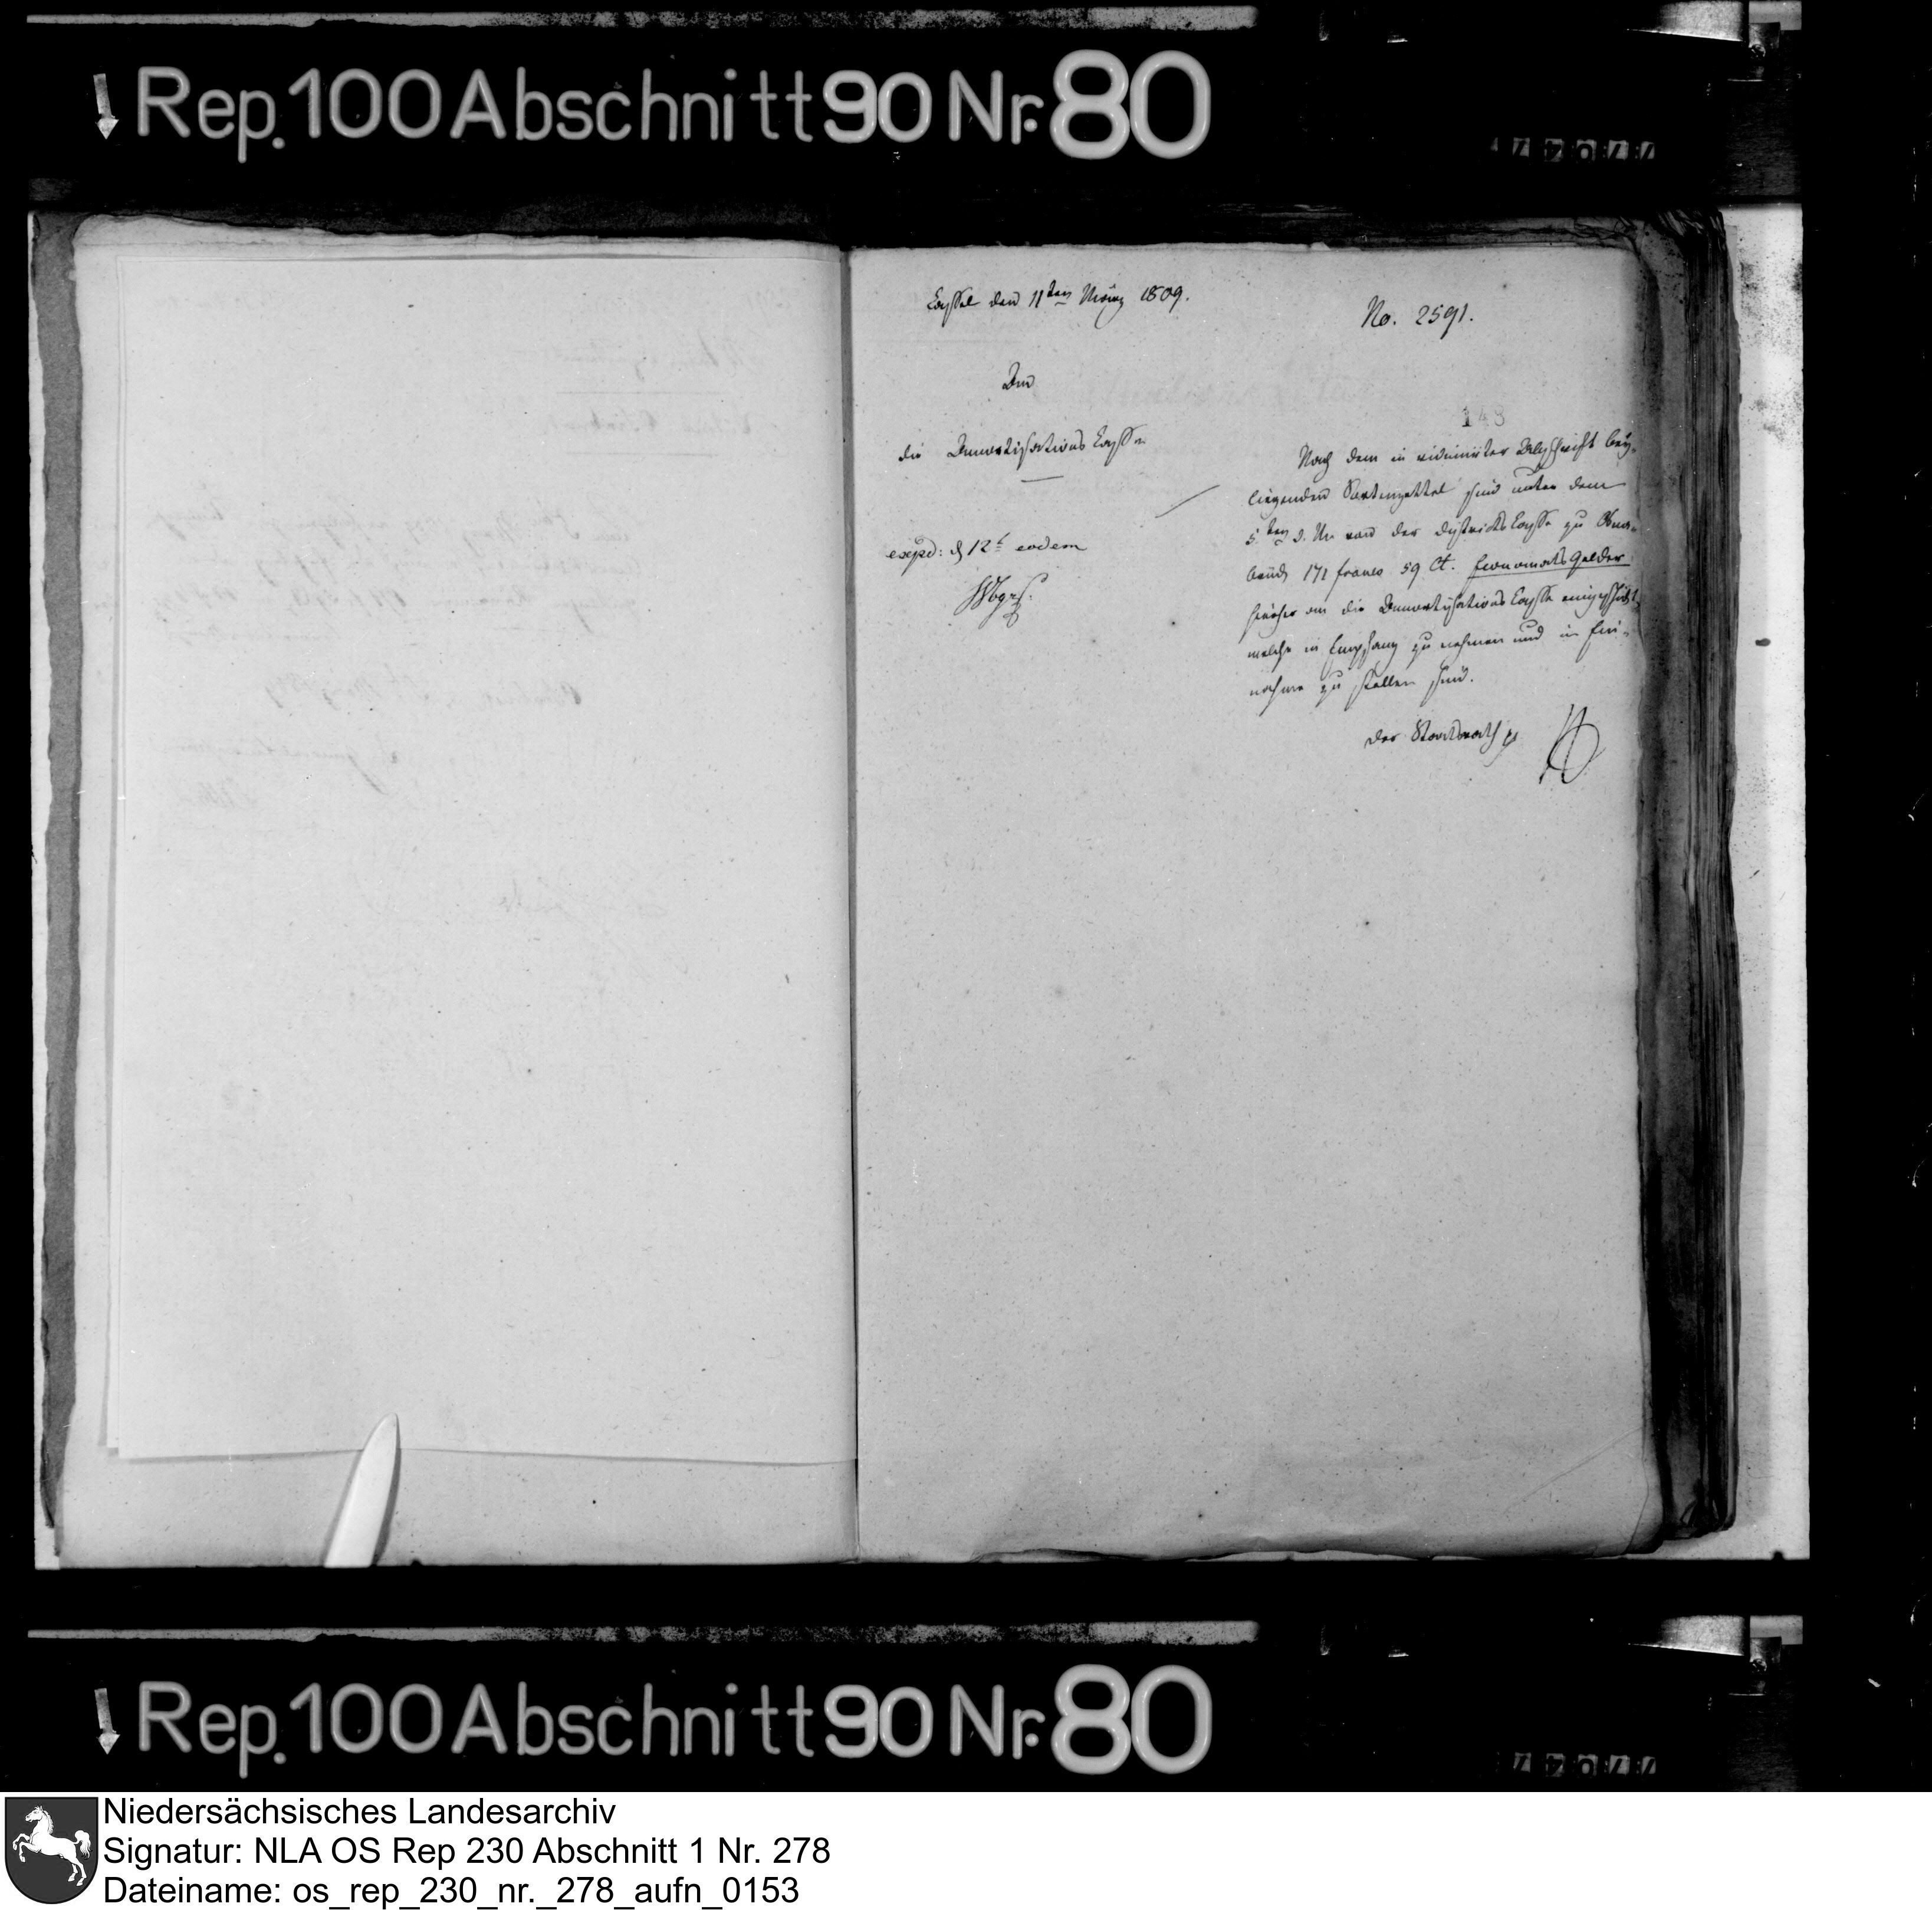 Rep. 100 Abschnitt 90 Nr. 80
Cassel den 11ten März 1809.
No. 2591.
An
die Amortisations Casse
expd: d 12t eodem
143
Nach dem in vidimirter Abschrift bey-
liegenden Sortenzettel sind unter dem
5ten d. M. von der Districts Casse zu Osna-
brück 171 francs 59 Ct. Economats Gelder
hierher an die Amortisations Casse eingeschickt,
welche in Empfang zu nehmen und in Ein-
nahme zu stellen sind.
Der Staatsrath
Rep. 100 Abschnitt 90 Nr. 80
Niedersächsisches Landesarchiv
Signatur: NLA OS Rep 230 Abschnitt 1 Nr. 278
Dateiname: os_rep_230_nr._278_aufn_0153